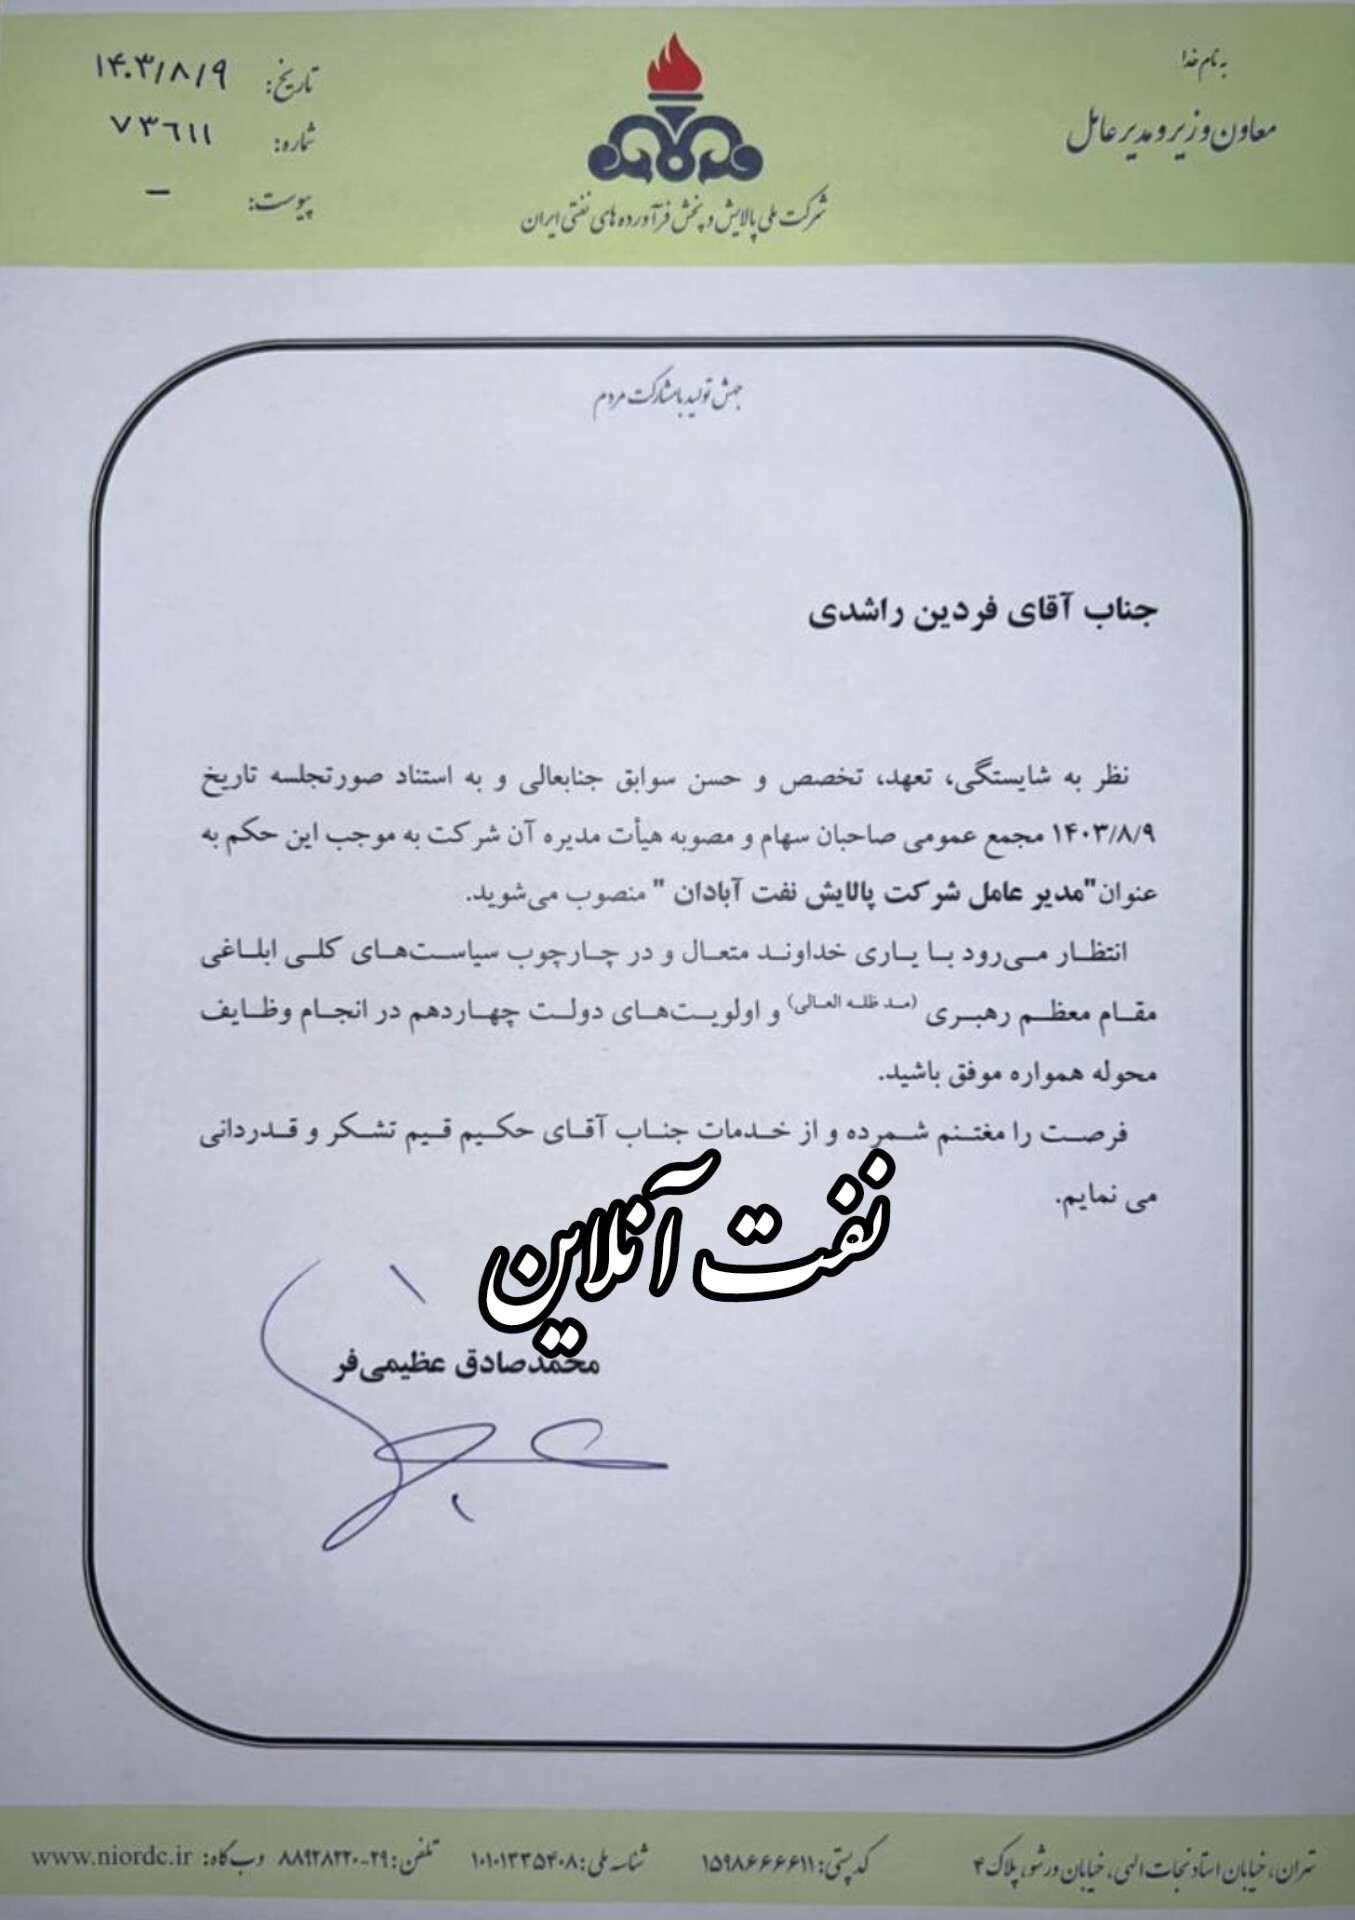 به نام خدا
معاون وزیر و مدیر عامل
شرکت ملی پالایش و پخش فرآورده های نفتی ایران
تاریخ: ۱۴۰۳/۸/۹
شماره: ۷۳۶۱۱
پیوست: –
جهش تولید با مشارکت مردم
جناب آقای فردین راشدی
نظر به شایستگی، تعهد، تخصص و حسن سوابق جنابعالی و به استناد صورتجلسه تاریخ
۱۴۰۳/۸/۹ مجمع عمومی صاحبان سهام و مصوبه هیأت مدیره آن شرکت به موجب این حکم به
عنوان"مدیر عامل شرکت پالایش نفت آبادان " منصوب می‌شوید.
انتظار می‌رود با یاری خداوند متعال و در چارچوب سیاست‌های کلی ابلاغی
مقام معظم رهبری (مد ظله العالی) و اولویت‌های دولت چهاردهم در انجام وظایف
محوله همواره موفق باشید.
فرصت را مغتنم شمرده و از خدمات جناب آقای حکیم قیم تشکر و قدردانی
می نمایم.
نفت آنلاین
محمدصادق عظیمی‌فر
تهران، خیابان استاد نجات الهی، خیابان ورشو، پلاک ۴ کد پستی: ۱۵۹۸۶۶۶۶۱۱ شناسه ملی: ۱۰۱۰۱۳۳۵۴۰۸ تلفن: ۲۹-۸۸۹۲۸۲۲۰ وب گاه: www.niordc.ir